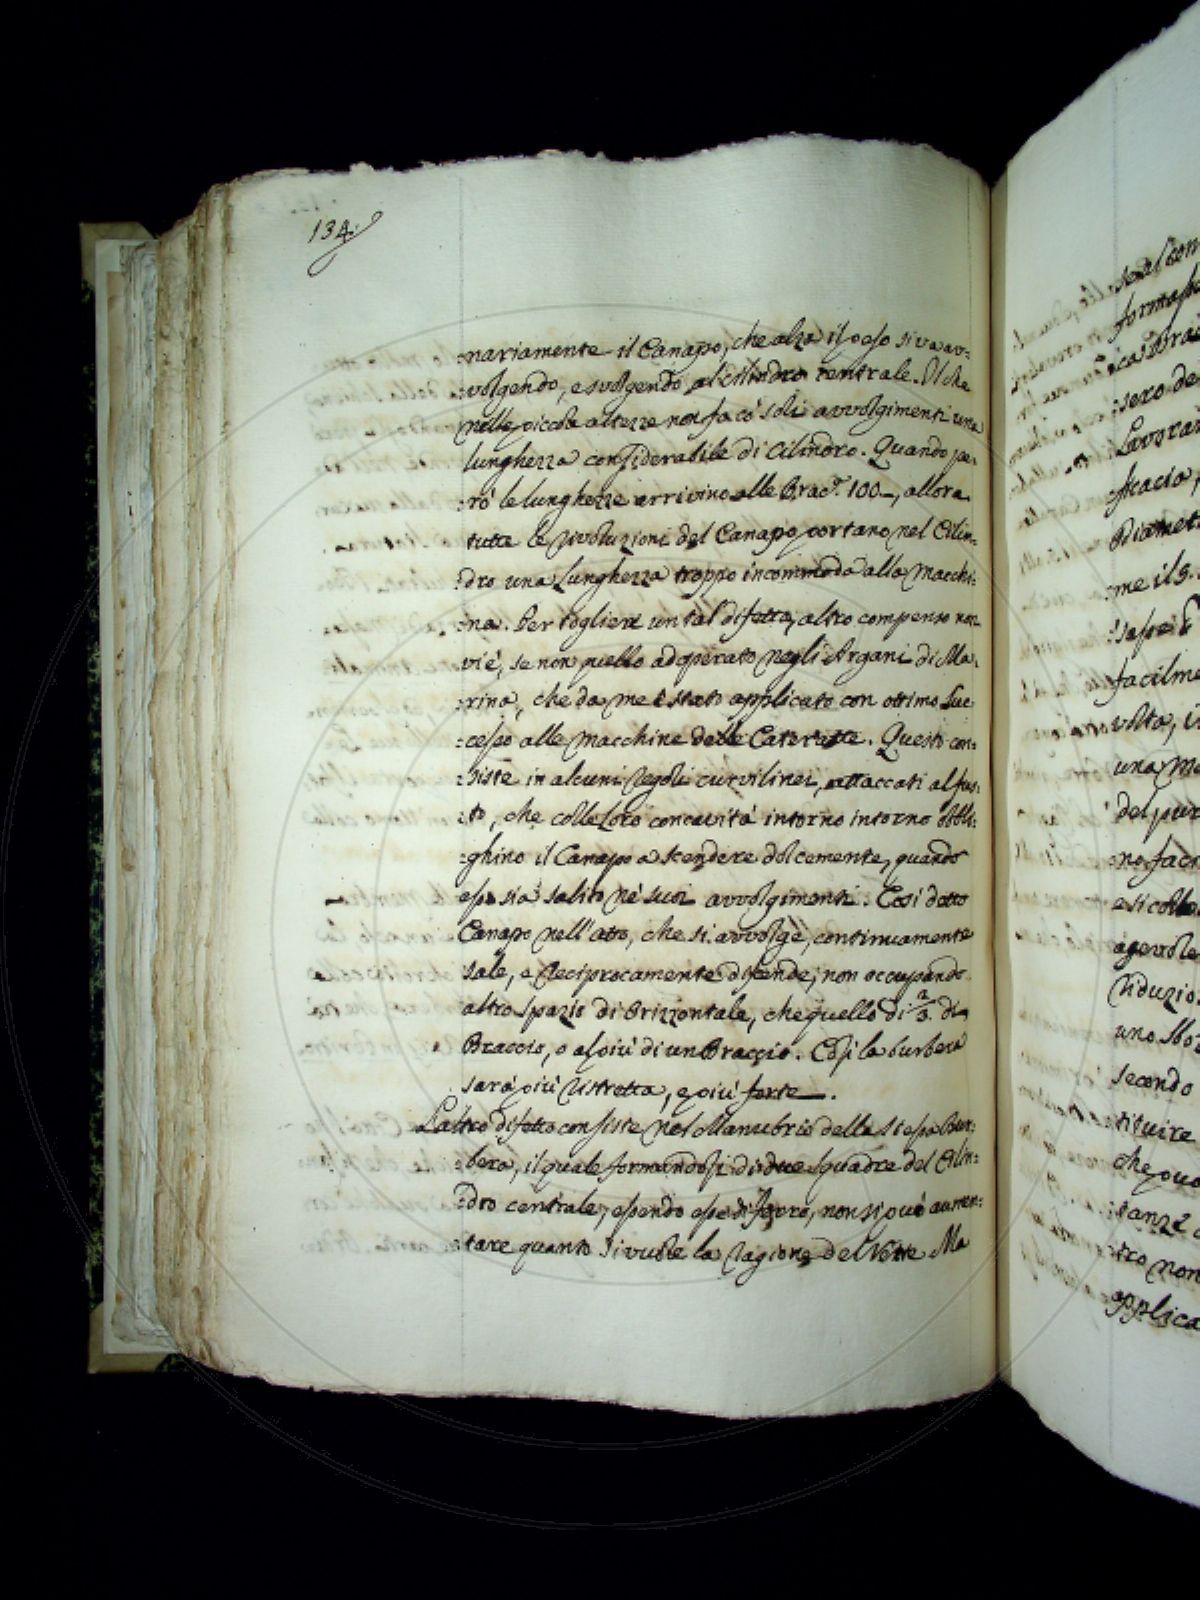 134.
:nariamente il Canapo, che alza il peso si va av:
:volgendo, e svolgendo al Cilindro Centrale. Il che
nelle piccole altezze non fa co' soli avvolgimenti una
lunghezza considerabile di Cilindro. Quando pe:
:rò le lunghezze arrivino alle Brac.ª 100 –, allora
tutte le rivoluzioni del Canapo portano nel Cilin:
:dro una lunghezza troppo incommoda alla Macchi:
:na. Per togliere un tal difetto, altro compenso non
vi è, se non quello adoperato negli Argani di Ma:
:rina, che da me è stato applicato con ottimo Suc
:cesso alle Macchine delle Cateratte. Questi con:
:siste in alcuni Regoli curvilinei, attaccati al fus:
:to, che colle Loro concavità intorno intorno obbli:
:ghino il Canapo a scendere dolcemente, quando
esso sia salito ne' suoi avvolgimenti. Così detto
Canapo nell'atto, che si avvolge, continuamente
sale, e Reciprocamente discende, non occupando
altro spazio di Orizzontale, che quello di 2/3. di
Braccio, o al più di un Braccio. Così la burbera
sarà più ristretta, e più forte —.
L'altro difetto consiste nel Manubrio della stessa Bur:
:bera, il quale formandosi di due squadre del Cilin:
:dro centrale, essendo esse di ferro, non si può aumen:
:tare quanto si vuole la ragione del Vette Ma
se al
forma
ica Brac
:sero de
Lavoran
:ficacia,
Diamet
:me il
facilme
volta, i
una Ma
del pur
:no
e si colle
agevole
riduzio
uno
secondo
:tituire
che quo
:tanze
:tro non
applica